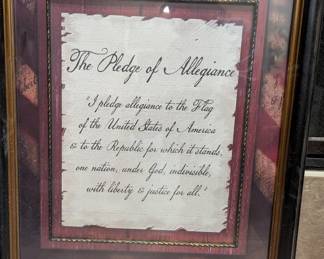 The Pledge of Allegiance
"I pledge allegiance to the Flag
of the United States of America
& to the Republic for which it stands,
one nation, under God, indivisible,
with liberty & justice for all."